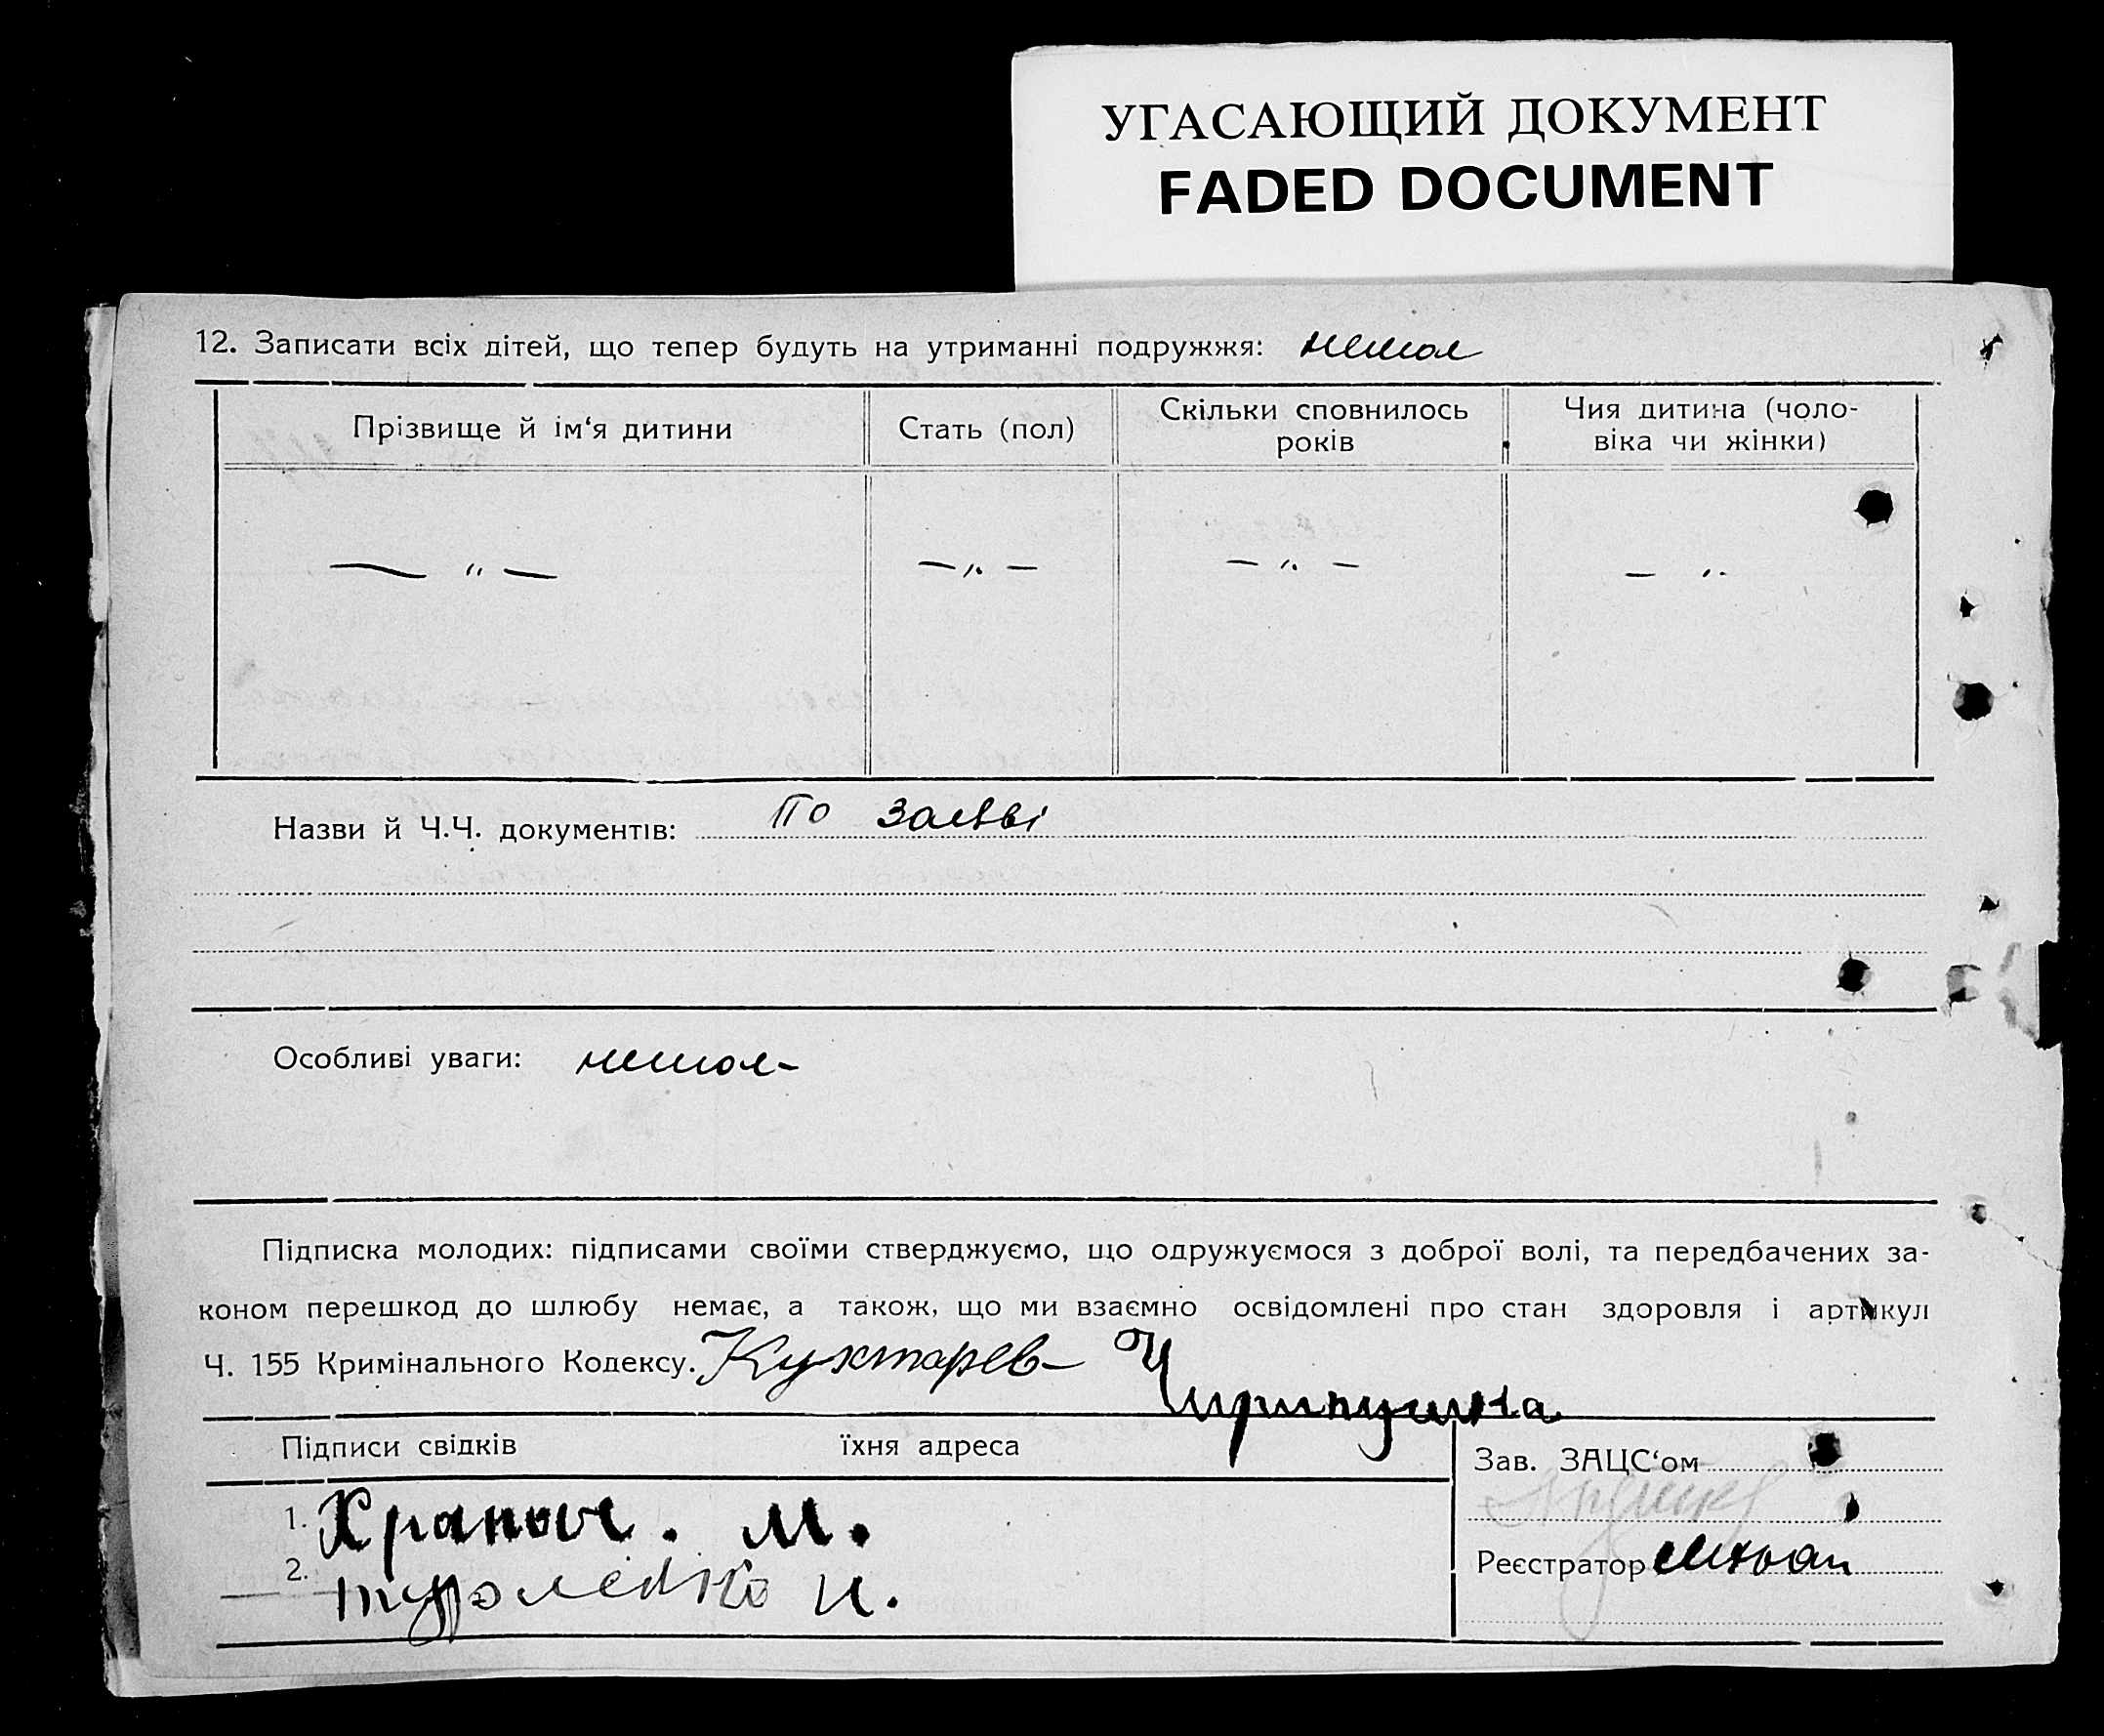 УГАСАЮЩИЙ ДОКУМЕНТ
FADED DOCUMENT
12. Записати всіх дітей, що тепер будуть на утриманні подружжя: немає
Прізвище й ім‘я дитини
Стать (пол)
Скільки сповнилось
років
Чия дитина (чоло-
віка чи жінки)
— „ —
— „ —
— „ —
— „
Назви й Ч.Ч. документів: По заяві
Особливі уваги: немає
Підписка молодих: підписами своїми стверджуємо, що одружуємося з доброї волі, та передбачених за-
коном перешкод до шлюбу немає, а також, що ми взаємно освідомлені про стан здоровля і артикул
Ч. 155 Кримінального Кодексу. Кухтарев
Підписи свідків
їхня адреса
Зав. ЗАЦС‘ом
1. М.
2. И.
Реєстратор